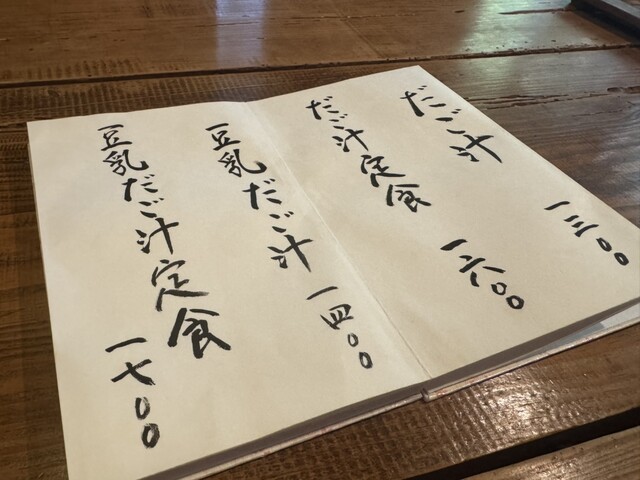 だご汁 一三〇〇
だご汁定食 一六〇〇
豆乳だご汁 一四〇〇
豆乳だご汁定食 一七〇〇